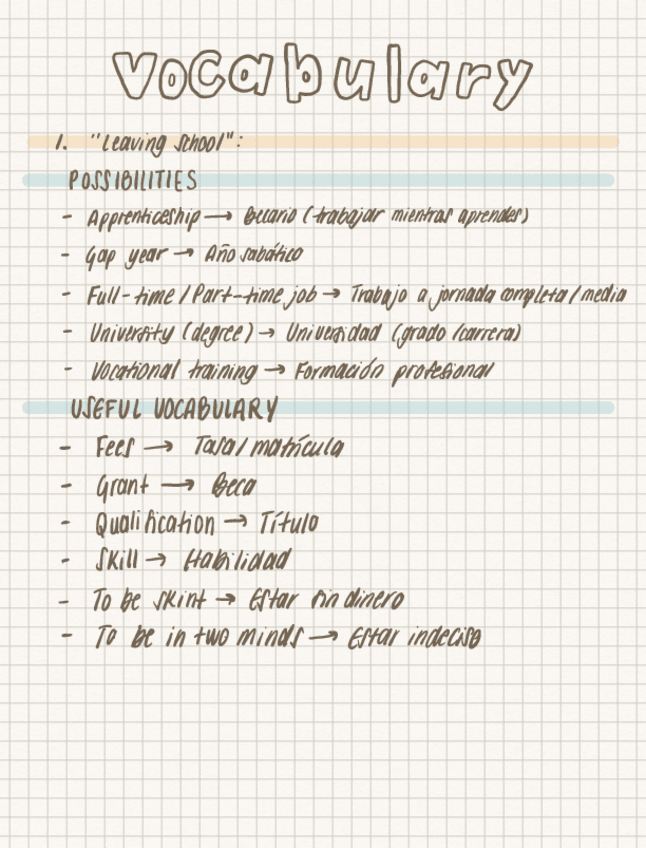 Vocabulary
1. "Leaving school":
POSSIBILITIES
- Apprenticeship → Becario (trabajar mientras aprendes)
- Gap year → Año sabático
- Full-time / Part-time job → Trabajo a jornada completa/media
- University (degree) → Universidad (grado/carrera)
- Vocational training → Formación profesional
USEFUL VOCABULARY
- Fees → Tasa/matrícula
- Grant → Beca
- Qualification → Título
- Skill → Habilidad
- To be skint → Estar sin dinero
- To be in two minds → Estar indeciso